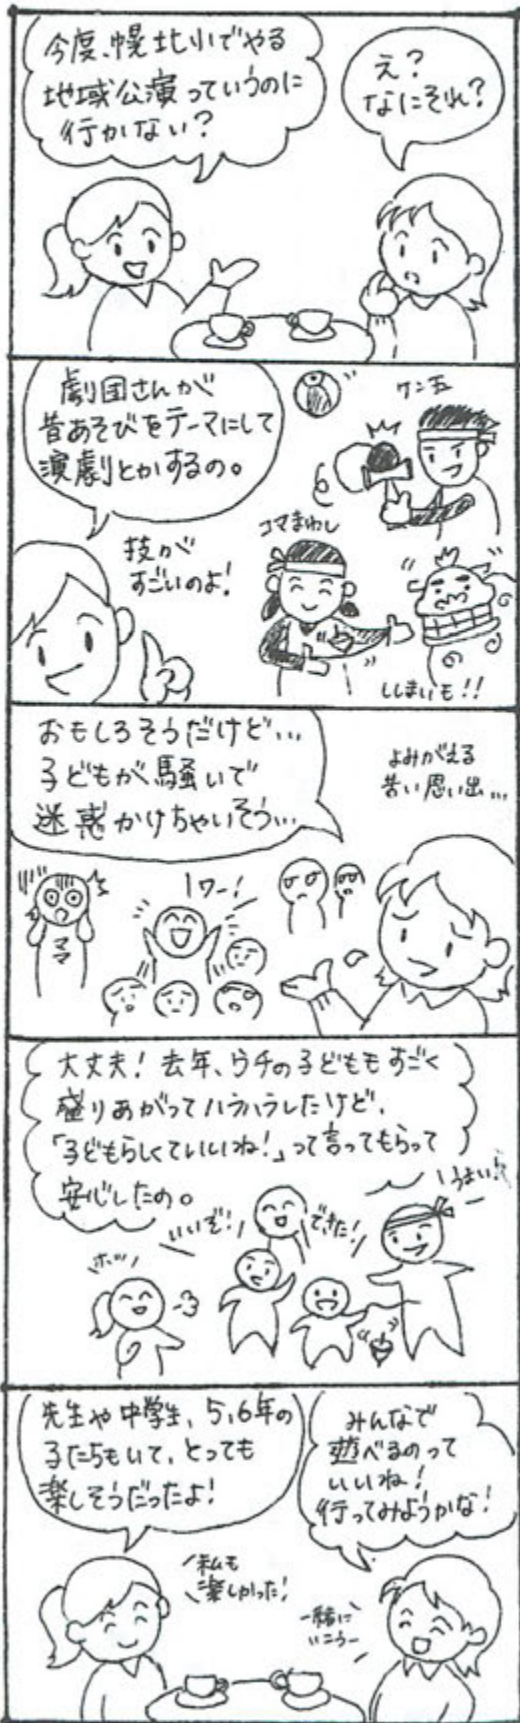 今度、幌北小でやる
地域公演っていうのに
行かない？
え？
なにそれ？
劇団さんが
昔あそびをテーマにして
演劇とかするの。
技が
すごいのよ！
ケン玉
コマまわし
ししまいも！！
おもしろそうだけど…
子どもが騒いで
迷惑かけちゃいそう…
よみがえる
苦い思い出…
ワー！
ママ
大丈夫！去年、ウチの子どももすごく
盛りあがってハラハラしたけど、
「子どもらしくていいね！」って言ってもらって
安心したの。
いいぞ！
できた！
うまい！
ホッ
先生や中学生、5、6年の
子たちもいて、とっても
楽しそうだったよ！
みんなで
遊べるのって
いいね！
行ってみようかな！
私も
楽しかった！
一緒に
いこうー